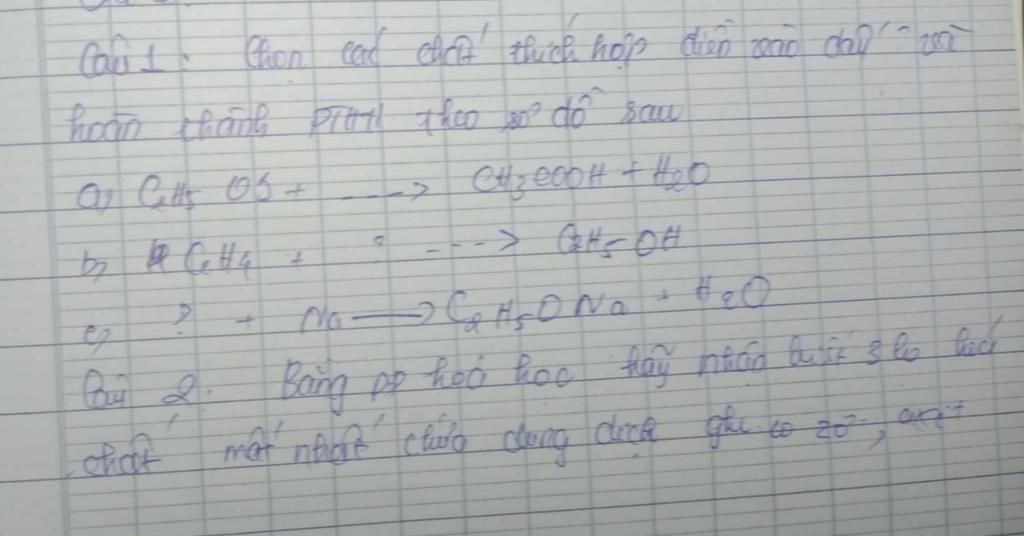 Câu 1: Chọn các chất thích hợp điền vào dấu ? và
hoàn thành PTHH theo sơ đồ sau
a, C2H5 OH + ----> CH3COOH + H2O
b, C2H4 + ? ---> C2H5 OH
c, ? + Na ⟶ C2H5ONa + H2O
Câu 2. Bằng pp hoá học hãy nhận biết 3 lọ hoá
chất mất nhãn chứa dung dịch glucozơ, axit